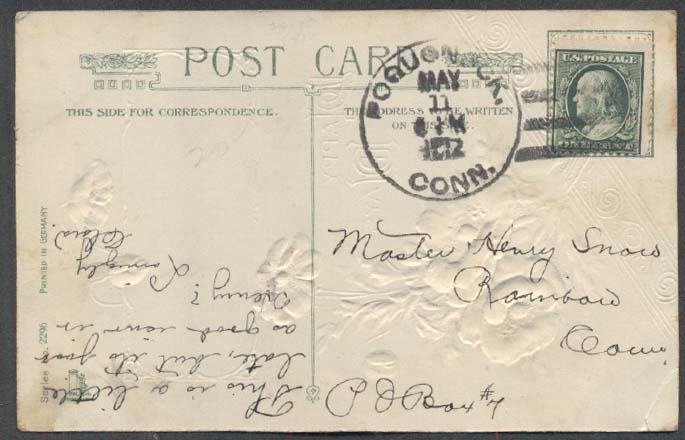 POST CARD
THIS SIDE FOR CORRESPONDENCE.
THE ADDRESS TO BE WRITTEN
ON THIS SIDE
POQUONOCK,
MAY
11
1912
CONN.
U.S. POSTAGE
ONE CENT
Master Henry Snow
Rainbow
Conn.
P O Box #7
This is a little
late, but it's just
as good now is
Henny?
Lovingly
Clara.
PRINTED IN GERMANY
Series No. 2296